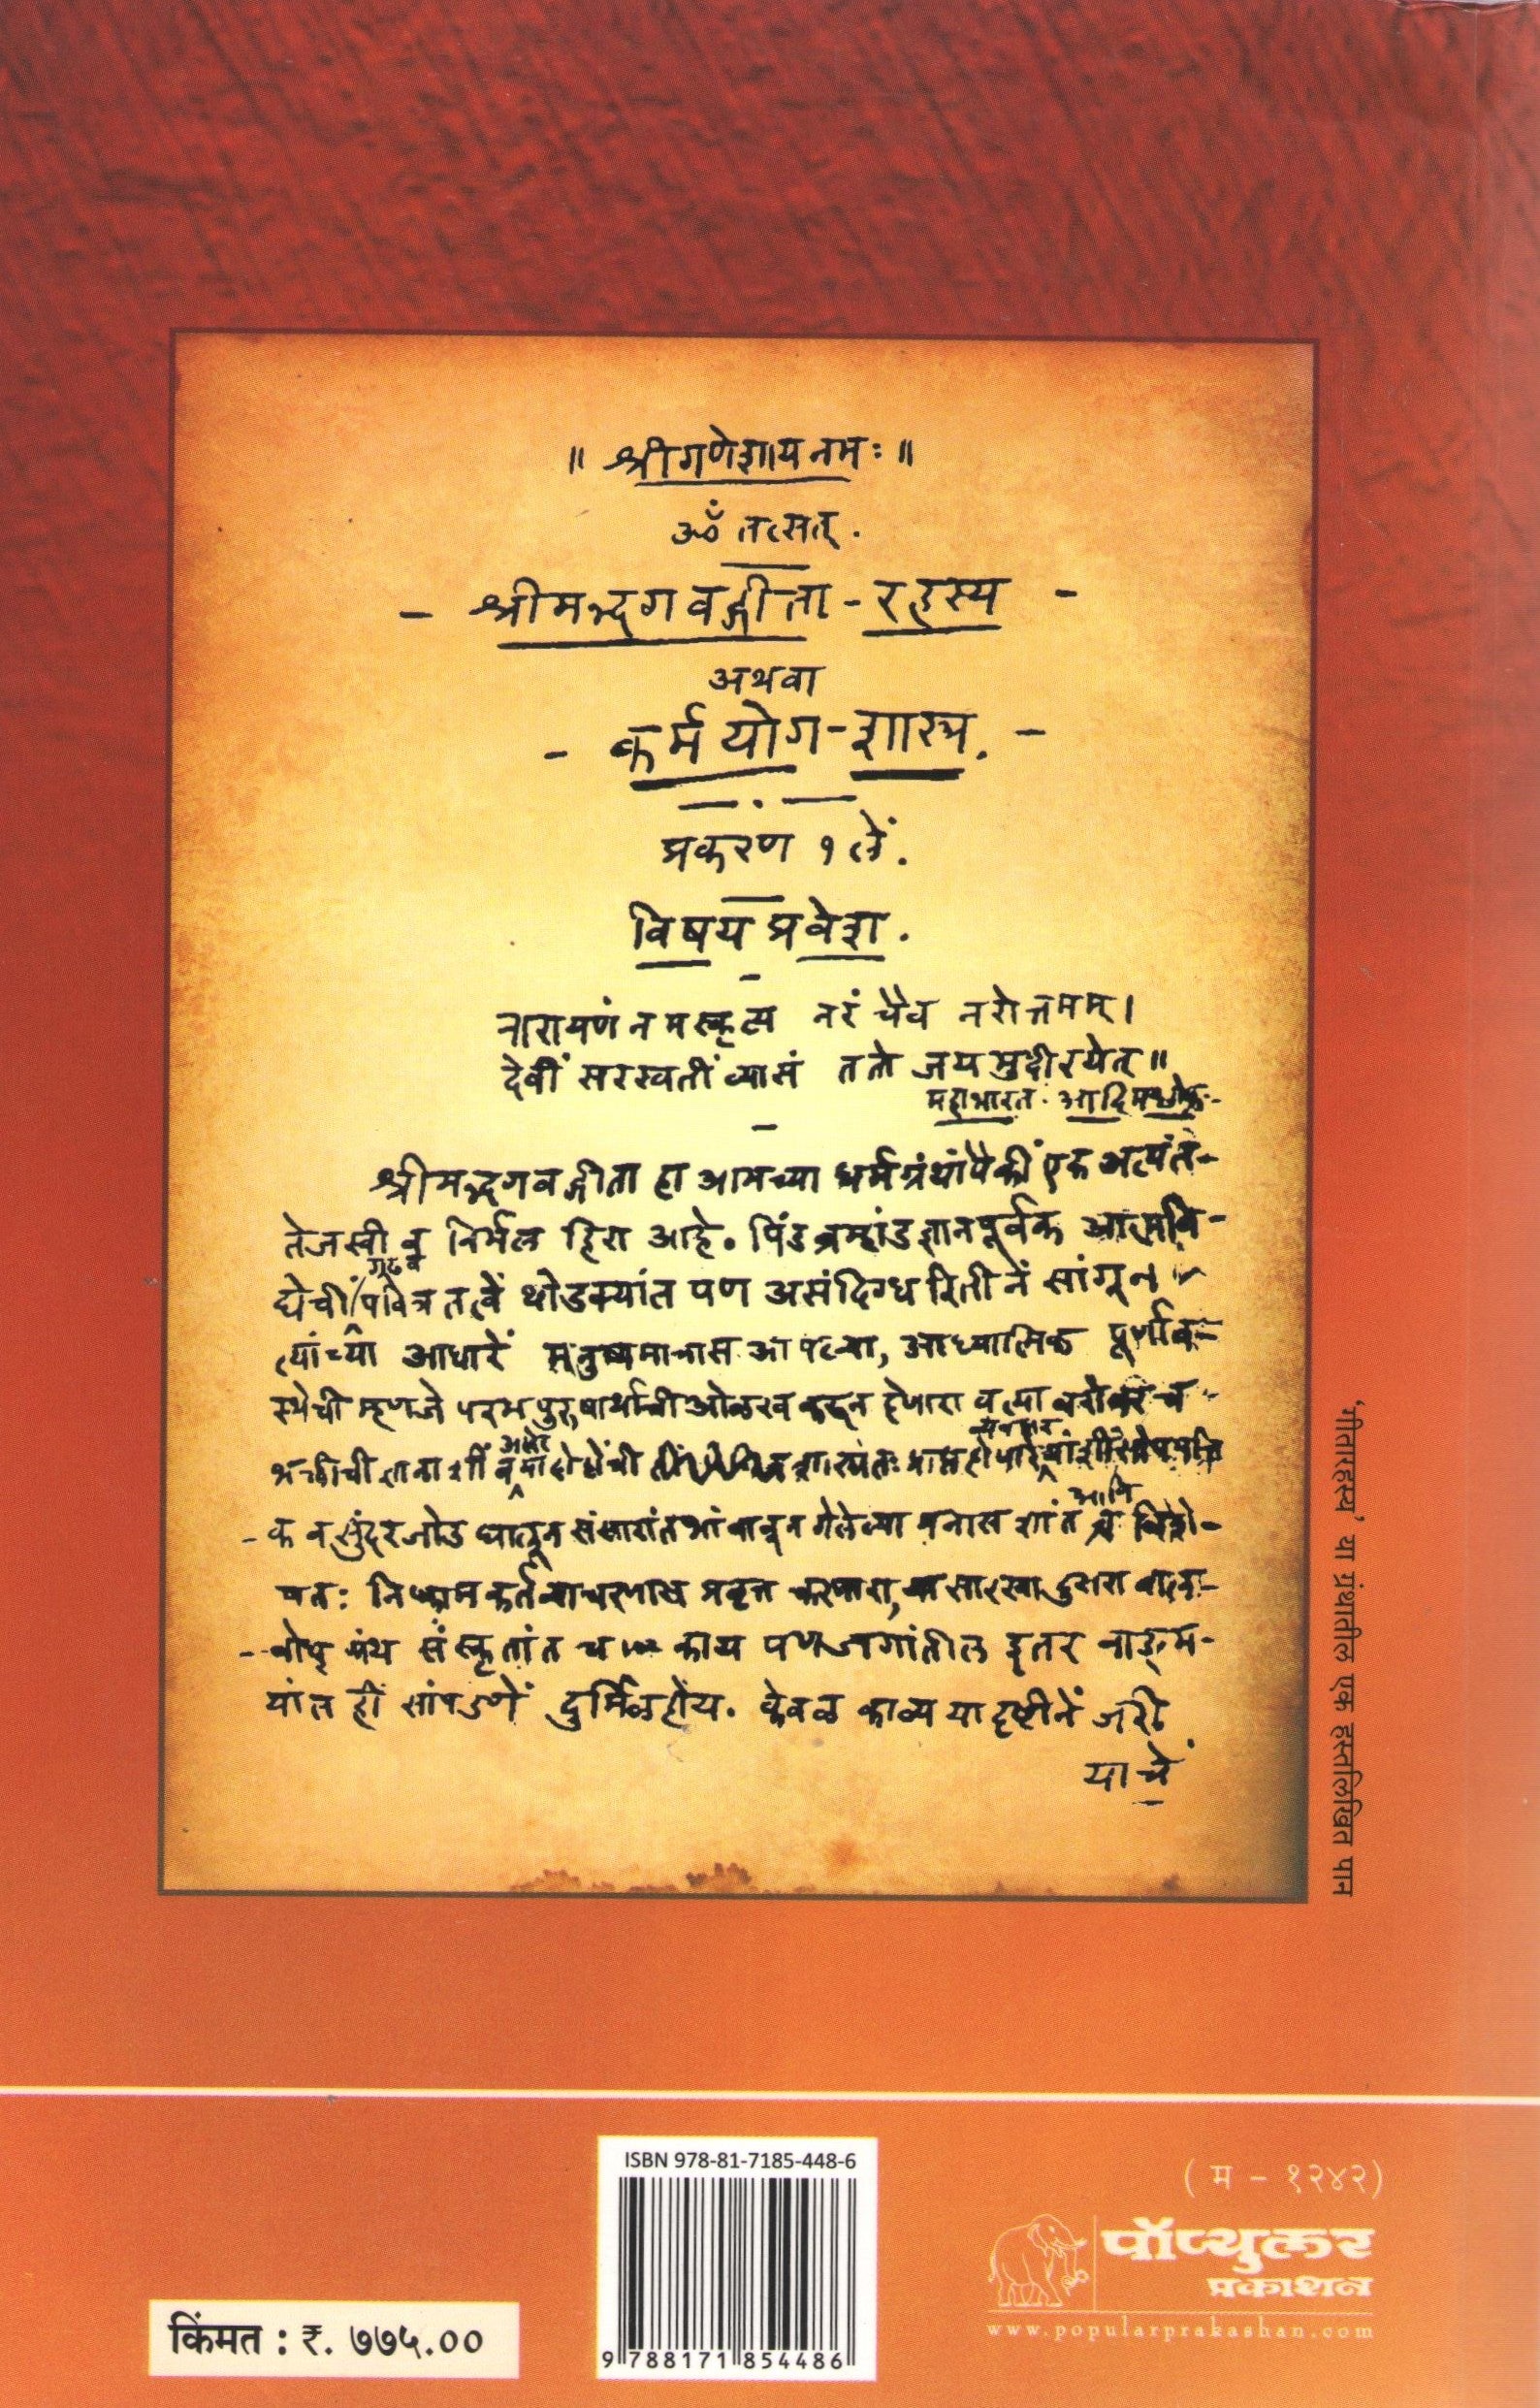 ॥ श्रीगणेशायनमः ॥
ॐ तत्सत्.
- श्रीमद्भगवद्गीता - रहस्य -
अथवा
- कर्मयोग - शास्त्र. -
प्रकरण १ लें.
विषय प्रवेश.
नारायणं नमस्कृत्य नरं चैव नरोत्तमम्।
देवीं सरस्वतीं व्यासं ततो जयमुदीरयेत्॥
महाभारत. आदिम श्लोक.
श्रीमद्भगवद्गीता हा आमच्या धर्मग्रंथांपैकीं एक अत्यंत
तेजस्वी व निर्मल हिरा आहे. पिंडब्रह्मांडज्ञानपूर्वक आत्मवि-
गूढ व
द्येचीं पवित्र तत्वें थोडक्यांत पण असंदिग्ध रितीनें सांगून
त्यांच्या आधारें मनुष्यमात्रास आपल्या आध्यात्मिक पूर्णाव-
स्थेची म्हणजे परमपुरुषार्थाची ओळख करून देणारा व त्याबरोबरच
भक्तीची ज्ञानाशीं व या दोहोंची शास्त्रतः प्राप्त होणाऱ्या
व्यवहाराशीं
आणि
क व सुंदर जोड घालून संसारांत भांबावून गेलेल्या मनास शांत विशे-
षतः निष्काम कर्तव्याचरणास प्रवृत्त करणारा, यासारखा दुसरा बाल-
बोध ग्रंथ संस्कृतांत च काय पण जगांतील इतर वाङ्म-
यांत ही सांपडणें दुर्मिळ होय. केवळ काव्य या दृष्टीनें जरी
याचें
‘गीतारहस्य’ या ग्रंथातील एक हस्तलिखित पान
ISBN 978-81-7185-448-6
9 788171 854486
(म - १२४२)
पॉप्युलर
प्रकाशन
www.popularprakashan.com
किंमत : रु. ७७५.००